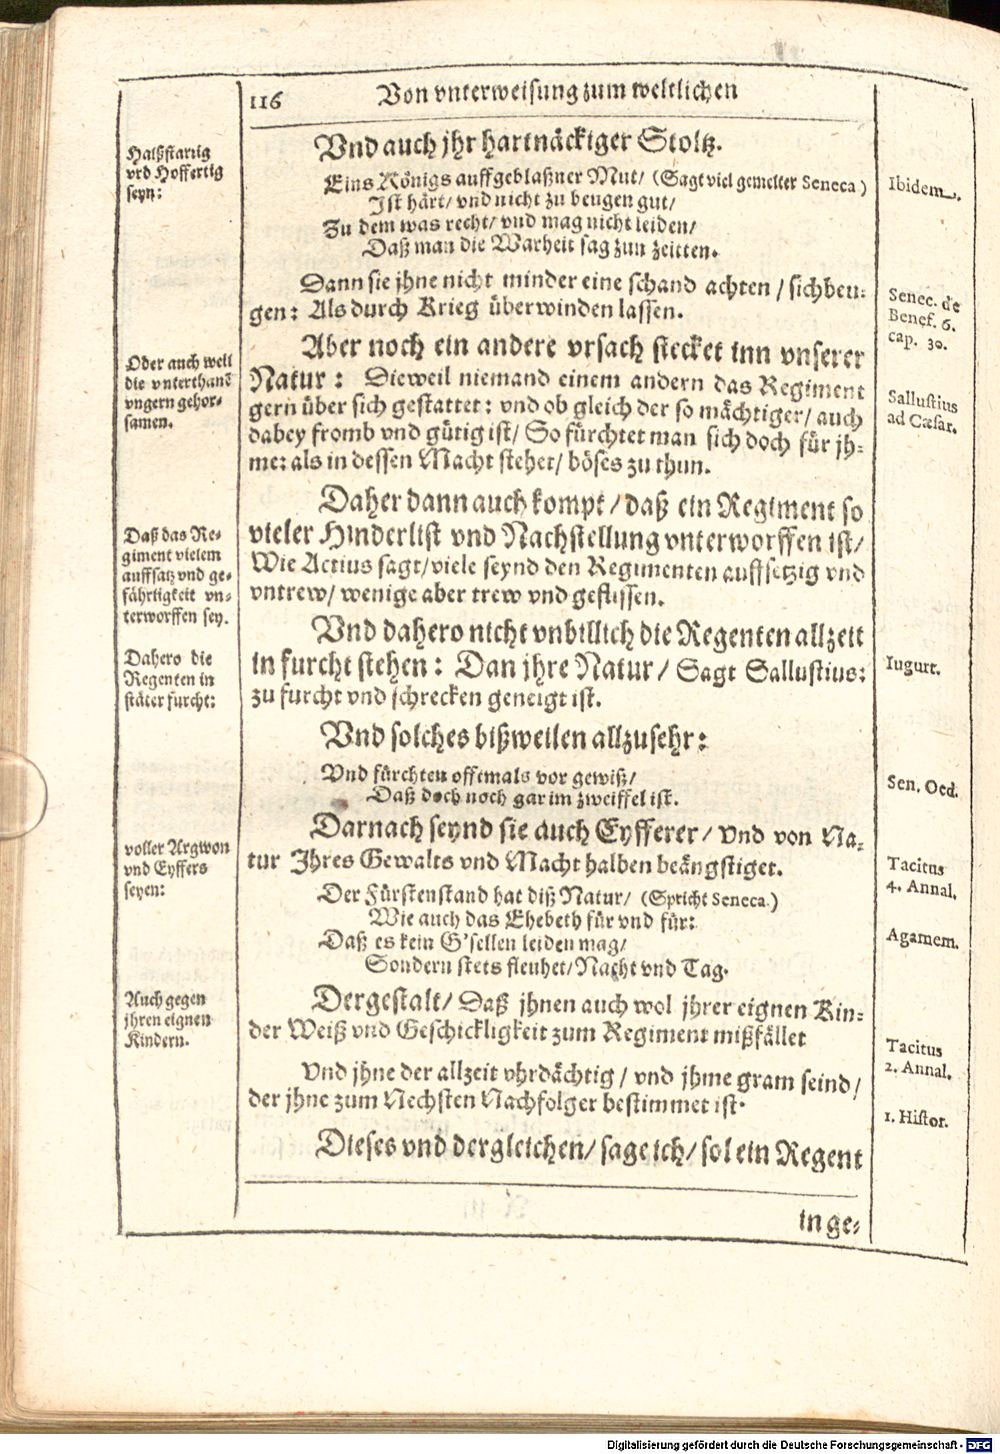 116 Von vnterweisung zum weltlichen
Halßstarrig
vnd Hoffertig
seyn:
Vnd auch jhr hartnäckiger Stoltz.
Eins Königs auffgeblaßner Mut/ (Sagt viel gemelter Seneca)
Ibidem.
Ist härt/ vnd nicht zu beugen gut/
Zu dem was recht/ vnd mag nicht leiden/
Daß man die Warheit sag zun zeitten.
Dann sie jhne nicht minder eine schand achten / sich beu-
gen: Als durch Krieg überwinden lassen.
Senec. de
Benef. 6.
cap. 30.
Oder auch weil
die vnterthanē
vngern gehor-
samen.
Aber noch ein andere vrsach stecket inn vnserer
Natur: Dieweil niemand einem andern das Regiment
gern über sich gestattet: vnd ob gleich der so mächtiger/ auch
dabey fromb vnd gütig ist/ So fürchtet man sich doch für jh-
me: als in dessen Macht stehet/ böses zu thun.
Sallustius
ad Cæsar.
Daß das Re-
giment vielem
auffsatz vnd ge-
fährligkeit vn-
terworffen sey.
Daher dann auch kompt / daß ein Regiment so
vieler Hinderlist vnd Nachstellung vnterworffen ist/
Wie Actius sagt/ viele seynd den Regimenten auffsetzig vnd
vntrew/ wenige aber trew vnd geflissen.
Dahero die
Regenten in
stäter furcht:
Vnd dahero nicht vnbillich die Regenten allzeit
in furcht stehen: Dan jhre Natur/ Sagt Sallustius:
zu furcht vnd schrecken geneigt ist.
Iugurt.
Vnd solches bißweilen allzusehr:
Vnd fürchten offtmals vor gewiß/
Daß doch noch gar im zweiffel ist.
Sen. Oed.
voller Argwon
vnd Eyffers
seyen:
Darnach seynd sie auch Eyfferer/ Vnd von Na-
tur Ihres Gewalts vnd Macht halben beängstiget.
Tacitus
4. Annal.
Der Fürstenstand hat diß Natur/ (Spricht Seneca.)
Wie auch das Ehebeth für vnd für:
Daß es kein G'sellen leiden mag/
Sondern stets fleuhet/ Nacht vnd Tag.
Agamem.
Auch gegen
jhren eignen
Kindern.
Dergestalt/ Daß jhnen auch wol jhrer eignen Kin-
der Weiß vnd Geschickligkeit zum Regiment mißfället
Tacitus
2. Annal.
Vnd jhne der allzeit vhrdächtig / vnd jhme gram seind/
der jhne zum Nechsten Nachfolger bestimmet ist.
1. Histor.
Dieses vnd dergleichen/ sage ich/ sol ein Regent
in ge-
Digitalisierung gefördert durch die Deutsche Forschungsgemeinschaft - DFG